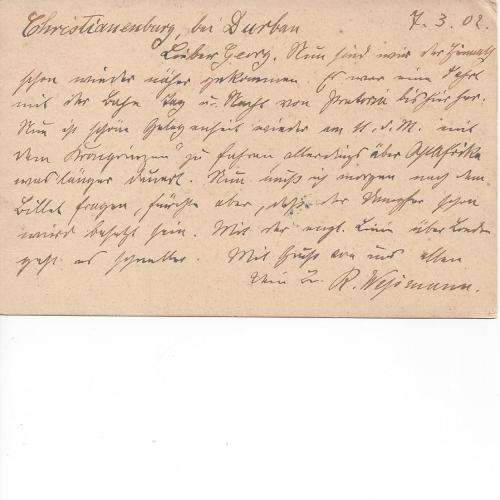 Christianenburg, bei Durban 7. 3. 02.
Lieber Georg. Nun sind wir der Heimath
schon wieder näher gekommen. Es war eine Fahrt
mit der Bahn Tag u. Nacht von Pretoria bis hierher.
Nun ist schöne Gelegenheit wieder am 11. d. M. mit
dem Kronprinzen" zu fahren allerdings über Ostafrika
was länger dauert. Nun muß ich morgen nach dem
Billet fragen, fürchte aber, daß der schon
wird besetzt sein. Mit der engl. Linie über London
geht es schneller. Mit Gruß von uns allen
Dein R. Wessmann.